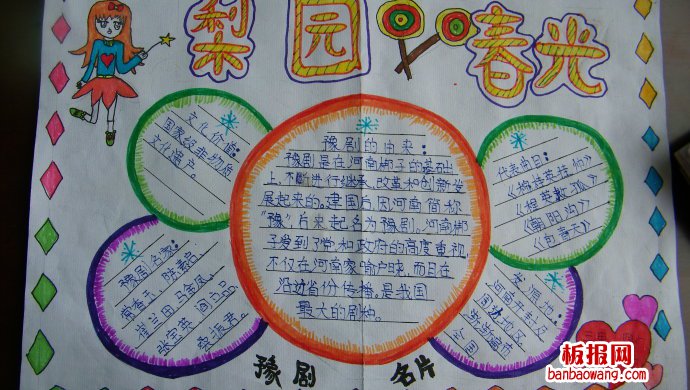 梨园春光
文化价值:
国家级非物质
文化遗产。
豫剧的由来:
豫剧是在河南梆子的基础
上,不断进行继承、改革和创新发
展起来的。建国后因河南简称
"豫"后来起名为豫剧。河南梆
子发到了党和政府的高度重视,
不仅在河南家喻户晓,而且在
沿边省份传播,是我国
最大的剧种。
代表曲目:
《穆桂英挂帅》
《朝阳沟》
《包青天》
豫剧名家:
常香玉、陈素真、
崔兰田、马金凤、
张宝英
发源地:
河南开封及
周边地区
全国
豫剧 名片
板报网
banbaowang.com